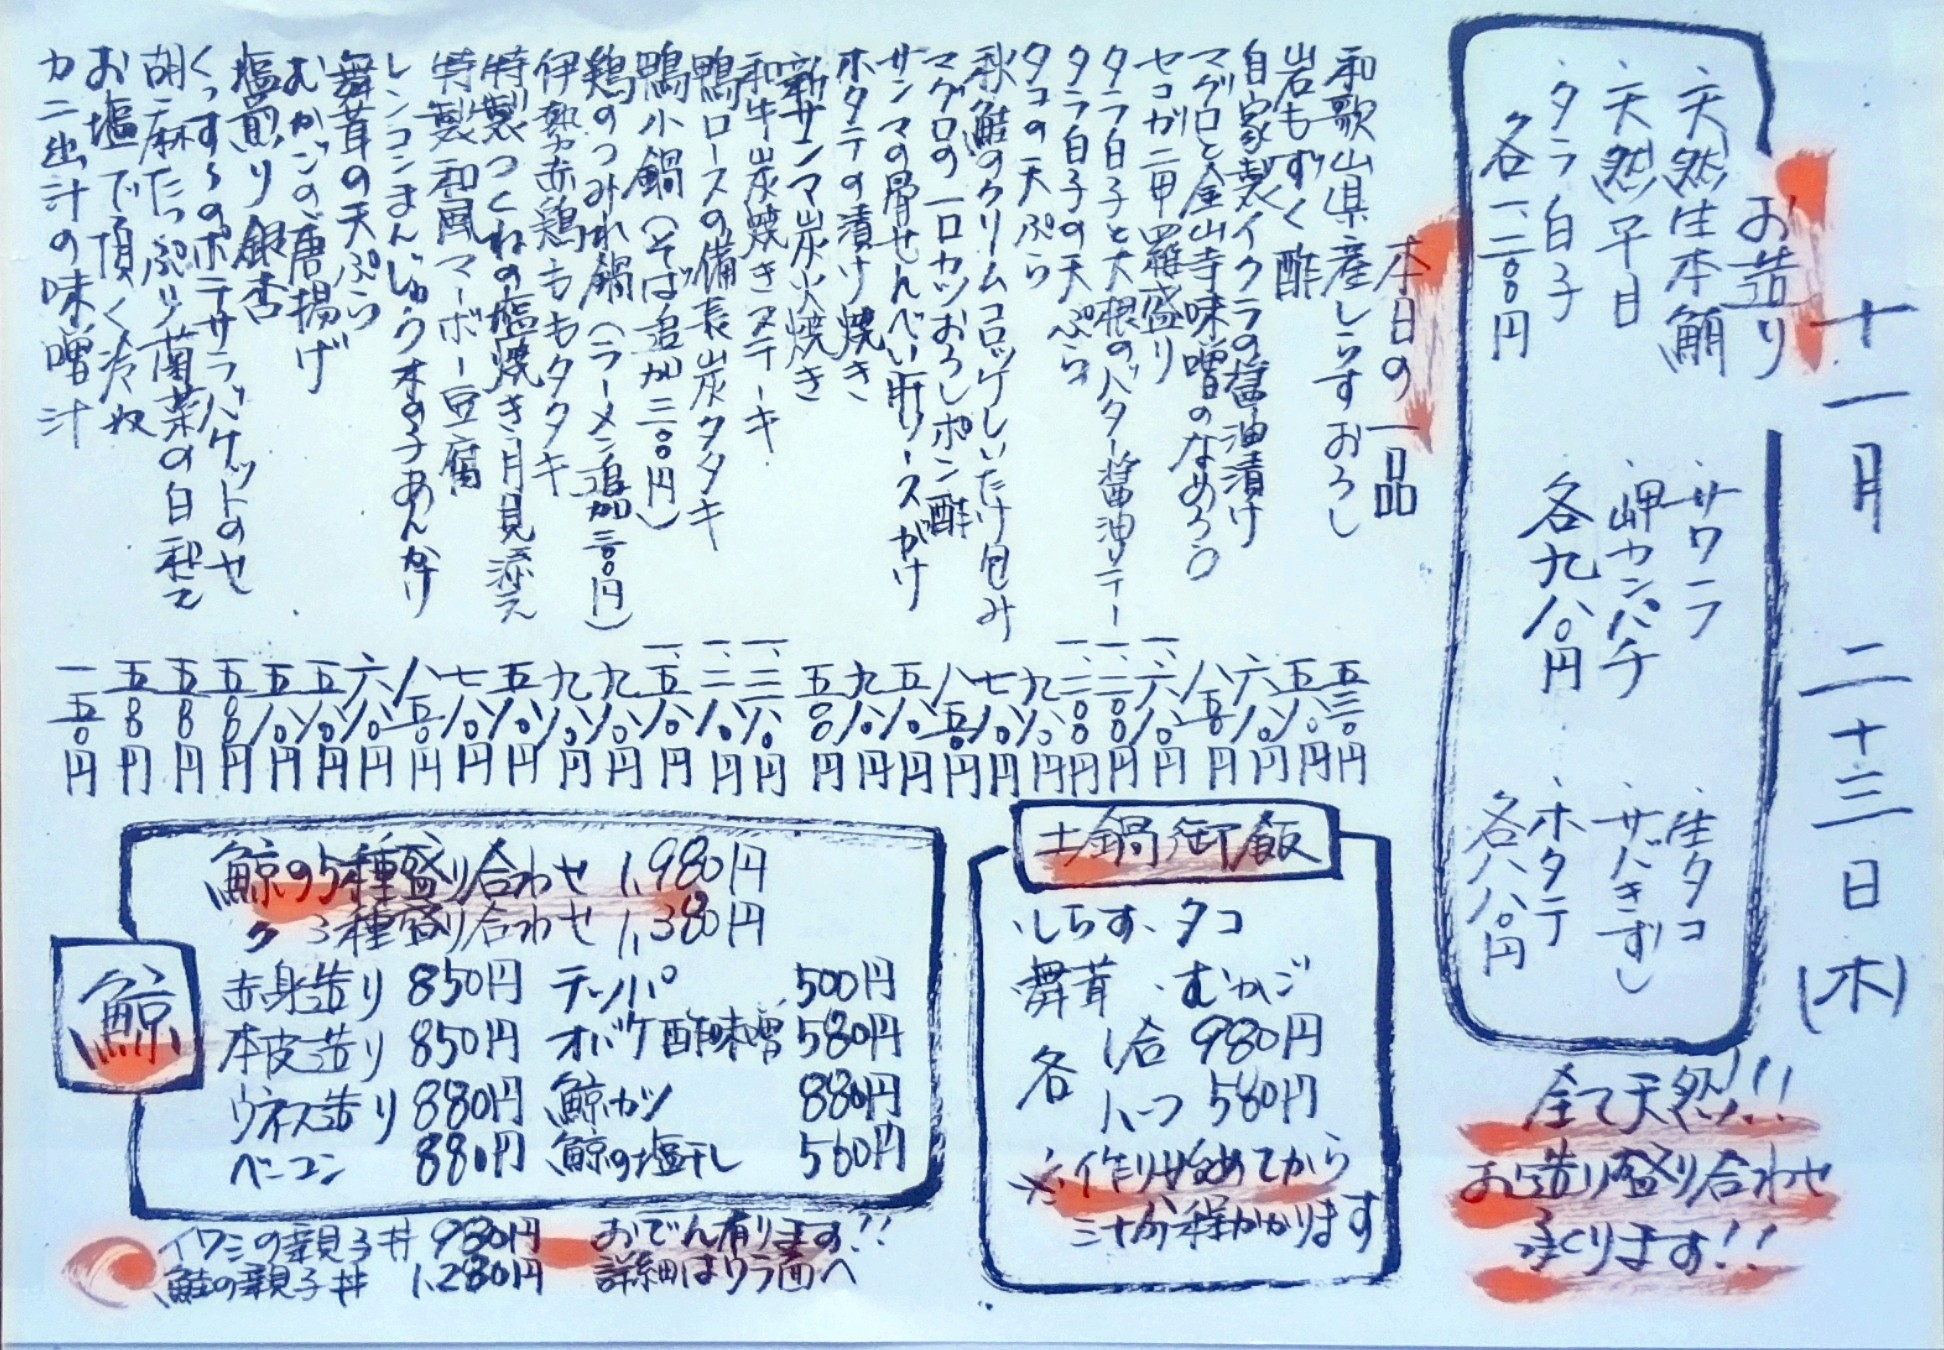 十一月 二十三日(木)
お造り
・天然生本鮪
・天然平目
・タラ白子
各一、二〇〇円
・サワラ
・岬カンパチ
各九八〇円
・生タコ
・サバきずし
・ホタテ
各八八〇円
全て天然!!!
お造り盛り合わせ
承くります!!
本日の一品
和歌山県産しらすおろし 五三〇円
岩もずく酢 五八〇円
自家製イクラの醤油漬け 六八〇円
マグロと金山寺味噌のなめろう 八五〇円
セコガニ甲羅盛り 一、六八〇円
タラ白子と大根のバター醤油ソテー 一、二〇〇円
タラ白子の天ぷら 一、二〇〇円
タコの天ぷら 九八〇円
秋鮭のクリームコロッケしいたけ包み 七八〇円
マグロの一口カツおろしポン酢 八五〇円
サンマの骨せんべい肝ソースがけ 五八〇円
ホタテの漬け焼き 九八〇円
新サンマ炭火焼き 五〇〇円
和牛炭焼きステーキ 一、三八〇円
鴨ロースの備長炭タタキ 一、二八〇円
鴨小鍋(そば追加三〇〇円) 一、五八〇円
鶏のつみれ鍋(ラーメン追加三〇〇円) 九八〇円
伊勢赤鶏ももタタキ 九八〇円
特製つくねの塩焼き月見添え 五八〇円
特製和風マーボー豆腐 七八〇円
レンコンまんじゅうキノコあんかけ 八五〇円
舞茸の天ぷら 六八〇円
むかごの唐揚げ 五八〇円
塩煎り銀杏 五八〇円
くっすんのポテサラバゲットのせ 五八〇円
胡麻たっぷり菊菜の白和え 五八〇円
お塩で頂く冷奴 五八〇円
カニ出汁の味噌汁 一五〇円
土鍋御飯
・しらす・タコ
舞茸・むかご
各 1合 980円
ハーフ 580円
※作り始めてから
三十分程かかります
鯨
鯨の5種盛り合わせ 1,980円
〃 3種盛り合わせ 1,380円
赤身造り 850円 テッパ 500円
本皮造り 850円 オバケ酢味噌 580円
ウネス造り 880円 鯨カツ 880円
ベーコン 880円 鯨の塩干し 560円
イワシの親子丼 980円
鮭の親子丼 1,280円
おでん有ります!!
詳細はウラ面へ